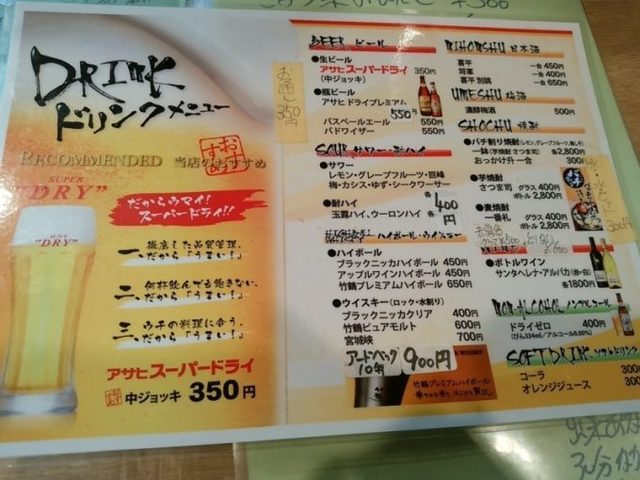 DRINK
ドリンクメニュー
おすすめ
RECOMMENDED 当店のおすすめ
SUPER
"DRY"
だからウマイ!
スーパードライ!!
一、徹底した品質管理、
だから「うまい!」
二、何杯飲んでも飽きない、
だから「うまい!」
三、ウチの料理に合う、
だから「うまい!」
アサヒスーパードライ
中ジョッキ 350円
お通し
350円
BEER ビール
●生ビール
アサヒスーパードライ 350円
(中ジョッキ)
●瓶ビール
アサヒ ドライプレミアム 550円
バスペールエール 550円
バドワイザー 550円
SOUR サワー・酎ハイ
●サワー
レモン・グレープフルーツ・巨峰
梅・カシス・ゆず・シークワーサー
●酎ハイ
玉露ハイ、ウーロンハイ
各400円
ハイボール・ウイスキー
●ハイボール
ブラックニッカハイボール 450円
アップルワインハイボール 450円
竹鶴プレミアムハイボール 650円
●ウイスキー(ロック・水割り)
ブラックニッカクリア 400円
竹鶴ピュアモルト 600円
宮城峡 700円
アードベック
10年 900円
竹鶴プレミアムハイボール
NIHONSHU 日本酒
喜平 一合 450円
将軍 一合 400円
喜平 別誂 一合 650円
UMESHU 梅酒
濃醇梅酒 500円
SHOCHU 焼酎
●パチ割り焼酎
一鉢(芋焼酎 さつま司) 2,800円
おっかけ升 一合 300円
●芋焼酎
さつま司 グラス 400円
ボトル 2,800円
●麦焼酎
一番札 グラス 400円
ボトル 2,800円
●ボトルワイン
サンタヘレナ・アルパカ(赤・白)
各1800円
NON-ALCOHOL ノンアルコール
ドライゼロ 400円
(びん334ml/アルコール0.00%)
SOFT DRINK ソフトドリンク
コーラ 300
オレンジジュース 300